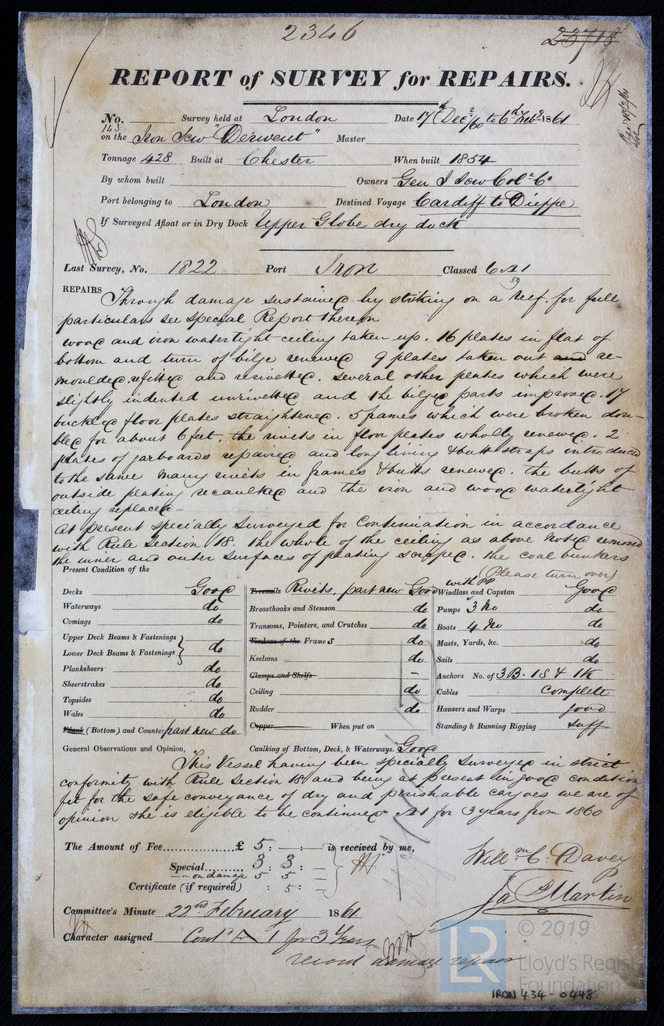 2346
REPORT of SURVEY for REPAIRS.
No. Survey held at London Date 17th Decr /60 to 6th Feby 1861
on the Iron Screw "Derwent" Master
Tonnage 428 Built at Chester When built 1854
By whom built Owners Gen I Screw Colr Co
Port belonging to London Destined Voyage Cardiff to Dieppe
If Surveyed Afloat or in Dry Dock Upper Globe dry dock
Last Survey, No. 1822 Port Iron Classed 6 A1
REPAIRS Through damage sustained by striking on a reef, for full
particulars see Special Report thereon
wood and iron watertight ceiling taken up. 16 plates in flat of
bottom and turn of bilge renewed 9 plates taken out and re-
moulded, refitted and rerivetted. several other plates which were
slightly indented unrivetted and the bilged parts improved. 17
buckled floor plates straightened. 5 frames which were broken dou-
bled for about 6 feet. the rivets in floor plates wholly renewed. 2
plates of garboards repaired and long lining & butt straps introduced
to the same many rivets in frames & butts renewed. the butts of
outside plating recaulked and the iron and wood watertight
ceiling replaced-
at present specially Surveyed for Continuation in accordance
with Rule Section 18. the whole of the ceiling as above noted removed
the inner and outer surfaces of plating scraped. the coal bunkers
(Please turn over)
Present Condition of the
Decks Good
Waterways do
Comings do
Upper Deck Beams & Fastenings
Lower Deck Beams & Fastenings do
Planksheers do
Sheerstrakes do
Topsides do
Wales do
Plank (Bottom) and Counter part new do
Treenails Rivets, part new Good
Breasthooks and Stemson do
Transoms, Pointers, and Crutches do
Timbers of the Frames do
Keelsons do
Clamps and Shelfs -
Ceiling do
Rudder do
Copper When put on
Windlass and Capstan Good
Pumps 3 No do
Boats 4 No do
Masts, Yards, &c. do
Sails do
Anchors No. of 3B. 1S & 1K
Cables Complete
Hawsers and Warps good
Standing & Running Rigging suff
General Observations and Opinion, Caulking of Bottom, Deck, & Waterways. Good
This Vessel having been specially Surveyed in strict
conformity with Rule Section 18, and being at present in good condition
fit for the safe conveyance of dry and perishable cargoes we are of
opinion she is eligible to be continued A1 for 3 years from 1860
The Amount of Fee £ 5 : - : - is received by me,
Special 3 : 3 : -
on damage 5 5
Certificate (if required) : 5 : -
Willm C. Davey
Jas P Martin
Committee's Minute 22nd February 1861
Character assigned Contd A 1 for 3 Years
record damage repairs
LR © 2019
Lloyd's Register
Foundation
IRON 434-0448